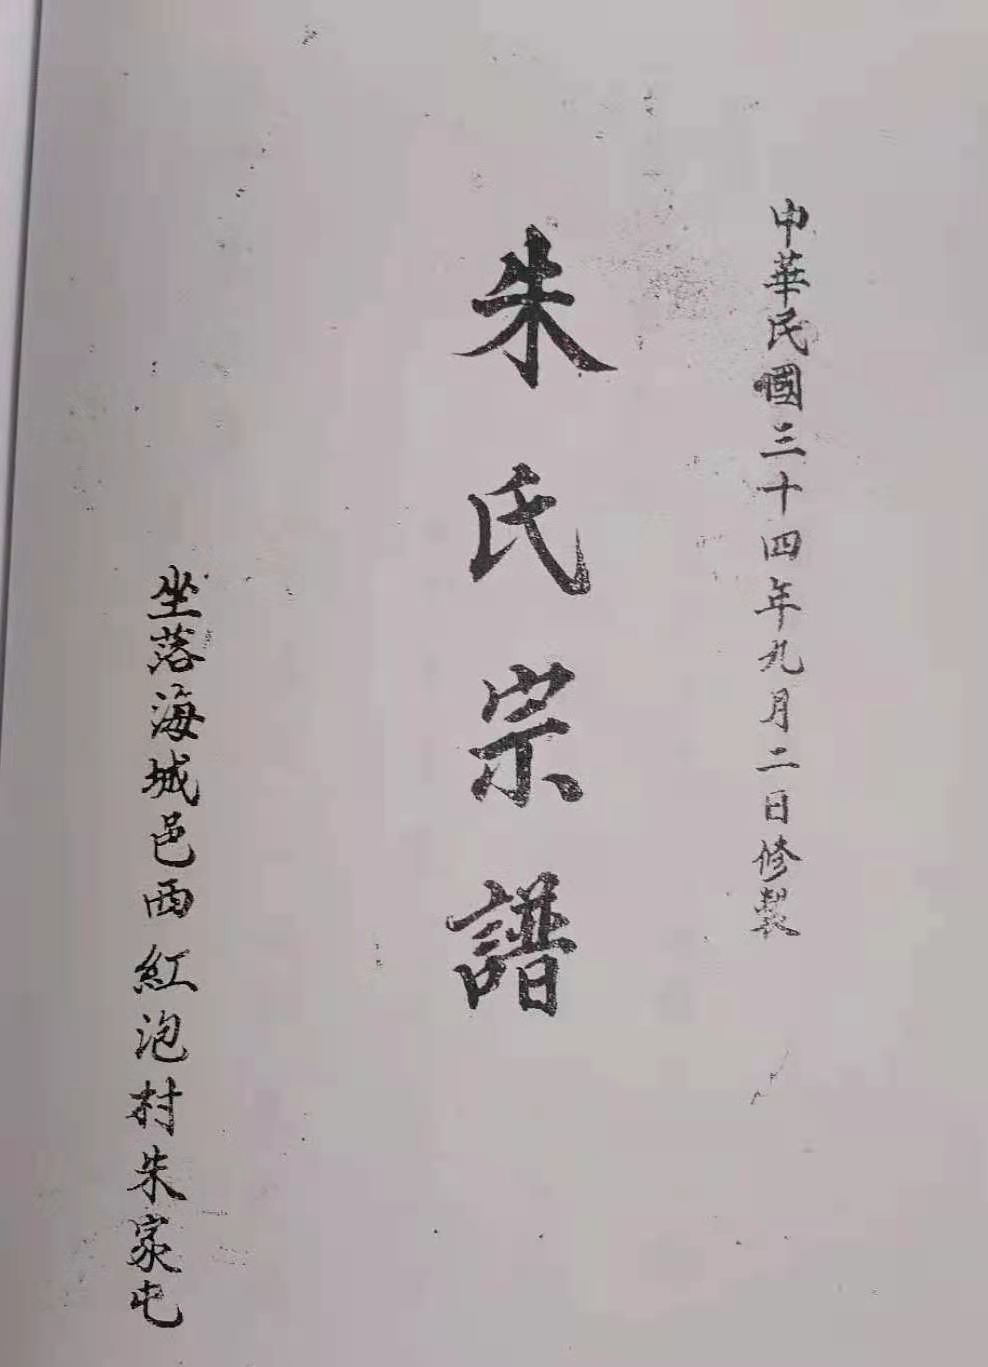 中華民國三十四年九月二日修製
朱氏宗譜
坐落海城邑西紅泡村朱家屯